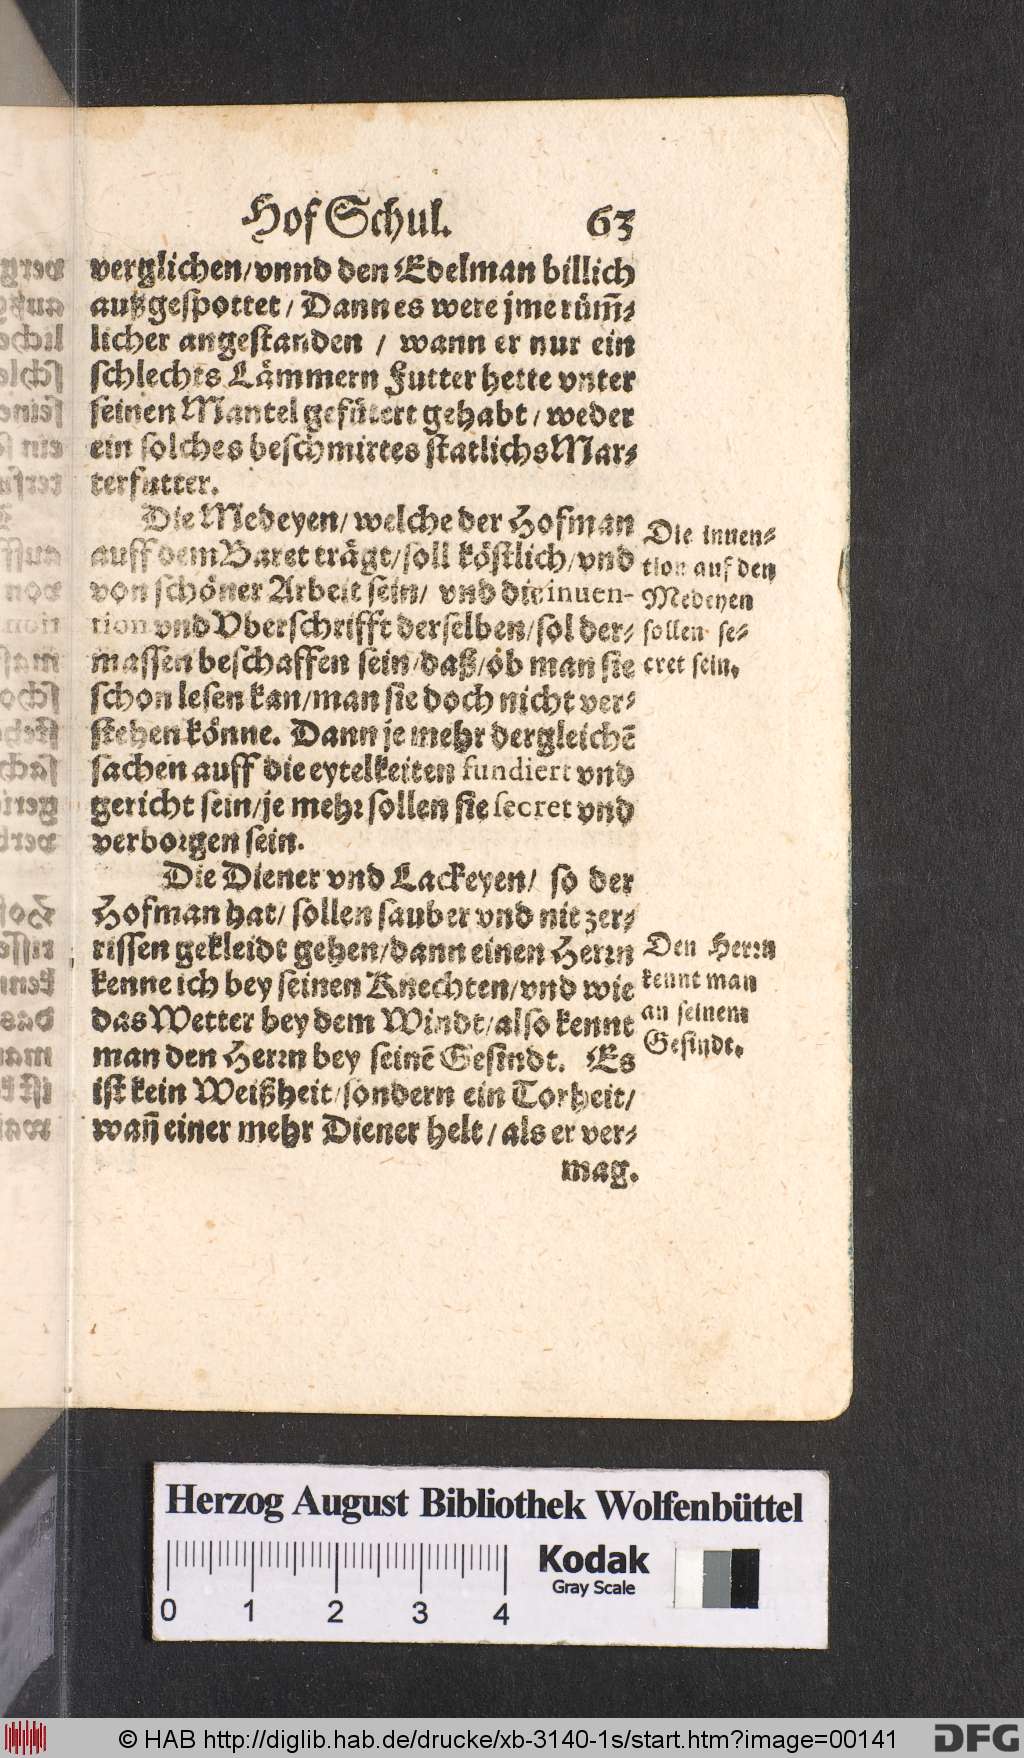 Hof Schul. 63
verglichen/vnnd den Edelman billich
außgespottet/ Dann es were jme rüm̃⸗
licher angestanden / wann er nur ein
schlechts Lämmern Futter hette vnter
seinen Mantel gefütert gehabt/ weder
ein solches beschmirtes statlichs Mar⸗
terfutter.
Die Medeyen/ welche der Hofman
auff dem Baret trägt/soll köstlich/vnd
von schöner Arbeit sein/ vnd die inuen-
tion vnd Vberschrifft derselben/sol der⸗
massen beschaffen sein/daß/ob man sie
schon lesen kan/man sie doch nicht ver⸗
stehen könne. Dann je mehr dergleichẽ
sachen auff die eytelkeiten fundiert vnd
gericht sein/je mehr sollen sie secret vnd
verborgen sein.
Die innen⸗
tion auf den
Medeyen
sollen se⸗
cret sein.
Die Diener vnd Lackeyen/ so der
Hofman hat/ sollen sauber vnd nit zer⸗
rissen gekleidt gehen/dann einen Herrn
kenne ich bey seinen Knechten/vnd wie
das Wetter bey dem Windt/also kennt
man den Herrn bey seinẽ Gesindt. Es
ist kein Weißheit/sondern ein Torheit/
wañ einer mehr Diener helt/als er ver⸗
mag.
Den Herrn
kennt man
an seinem
Gesindt.
Herzog August Bibliothek Wolfenbüttel
Kodak
Gray Scale
0 1 2 3 4
© HAB http://diglib.hab.de/drucke/xb-3140-1s/start.htm?image=00141
DFG